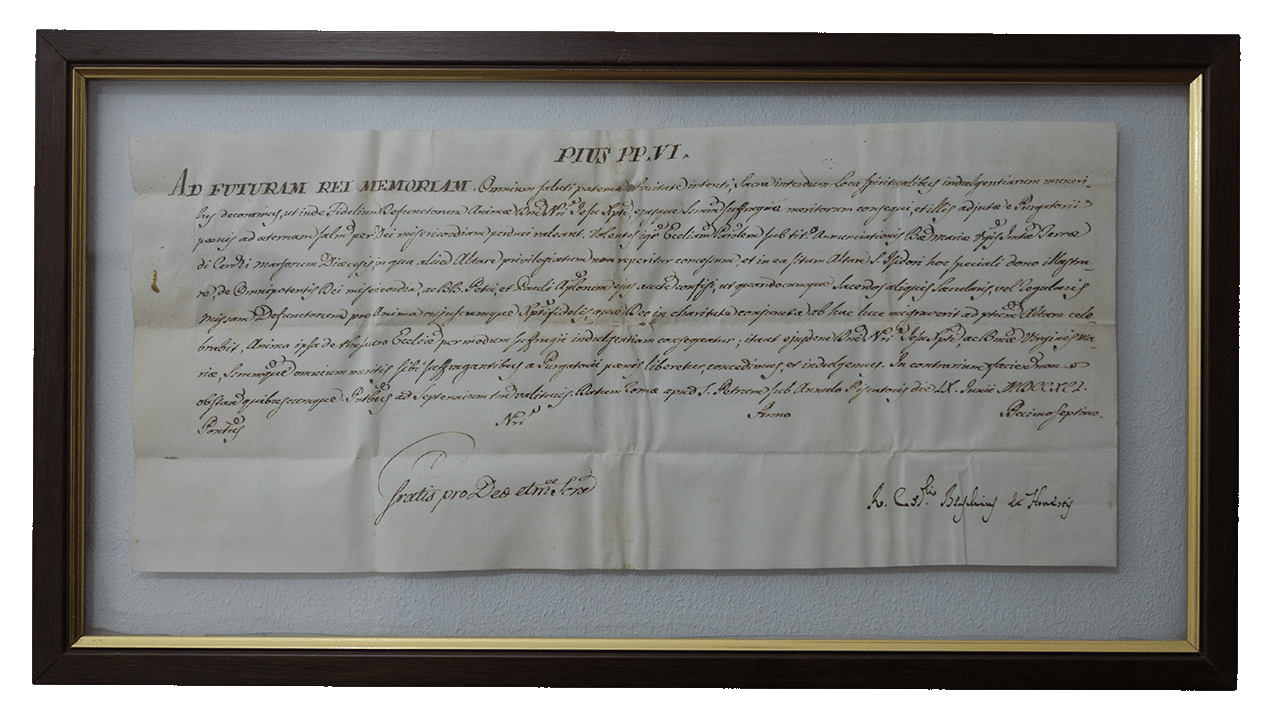 PIUS PP. VI.
AD FUTURAM REI MEMORIAM. Omnium saluti paterna charitate intenti, Sacra interdum Loca Spiritualibus indulgentiarum muneri-
bus decoramus, ut inde Fidelium Defunctorum Animæ Dñi Nri Jesu Xpti, ejusque Sanctor suffragia meritorum consequi, et illis adjutæ è Purgatorii
pœnis ad æternam salm per Dei misericordiam perduci valeant. Volentes igr Eccliam Parlem sub tit. Annunciationis Bæ Mariæ Vgis Terræ
di Marsorum Diœcesis, in qua aliud Altare privilegiatum non reperitur concessum, et in ea situm Altare S. Isidori hoc speciali dono illustra-
re, de Omnipotentis Dei misericordia, ac BB. Petri, et Pauli Aplorum ejus aucte confisi, ut quandocumque Sacerdos aliquis Sæcularis, vel Regularis
Missam Defunctorum pro Anima cujuscumque Xptifidelis, quæ Deo in charitate conjuncta ab hac luce migraverit ad Altare cele-
brabit, Anima ipsa de thesauro Eccliæ per modum suffragii indulgentiam consequatur; ita ut ejusdem Dñi Nri Jesu Xpti ac Bmæ Virginis Ma-
riæ, Sanctorque omnium meritis sibi suffragantibus a Purgatorii pœnis liberetur, concedimus, et indulgemus. In contrarium facien non
obstan quibuscumque. Pntibus ad Septennium tm valituris. Datum Romæ apud S. Petrum sub Annulo Piscatoris die IX. Junii MDCCXCI.
Pontus Nri Anno Decimoseptimo.
Gratis pro Deo et
R. Card.